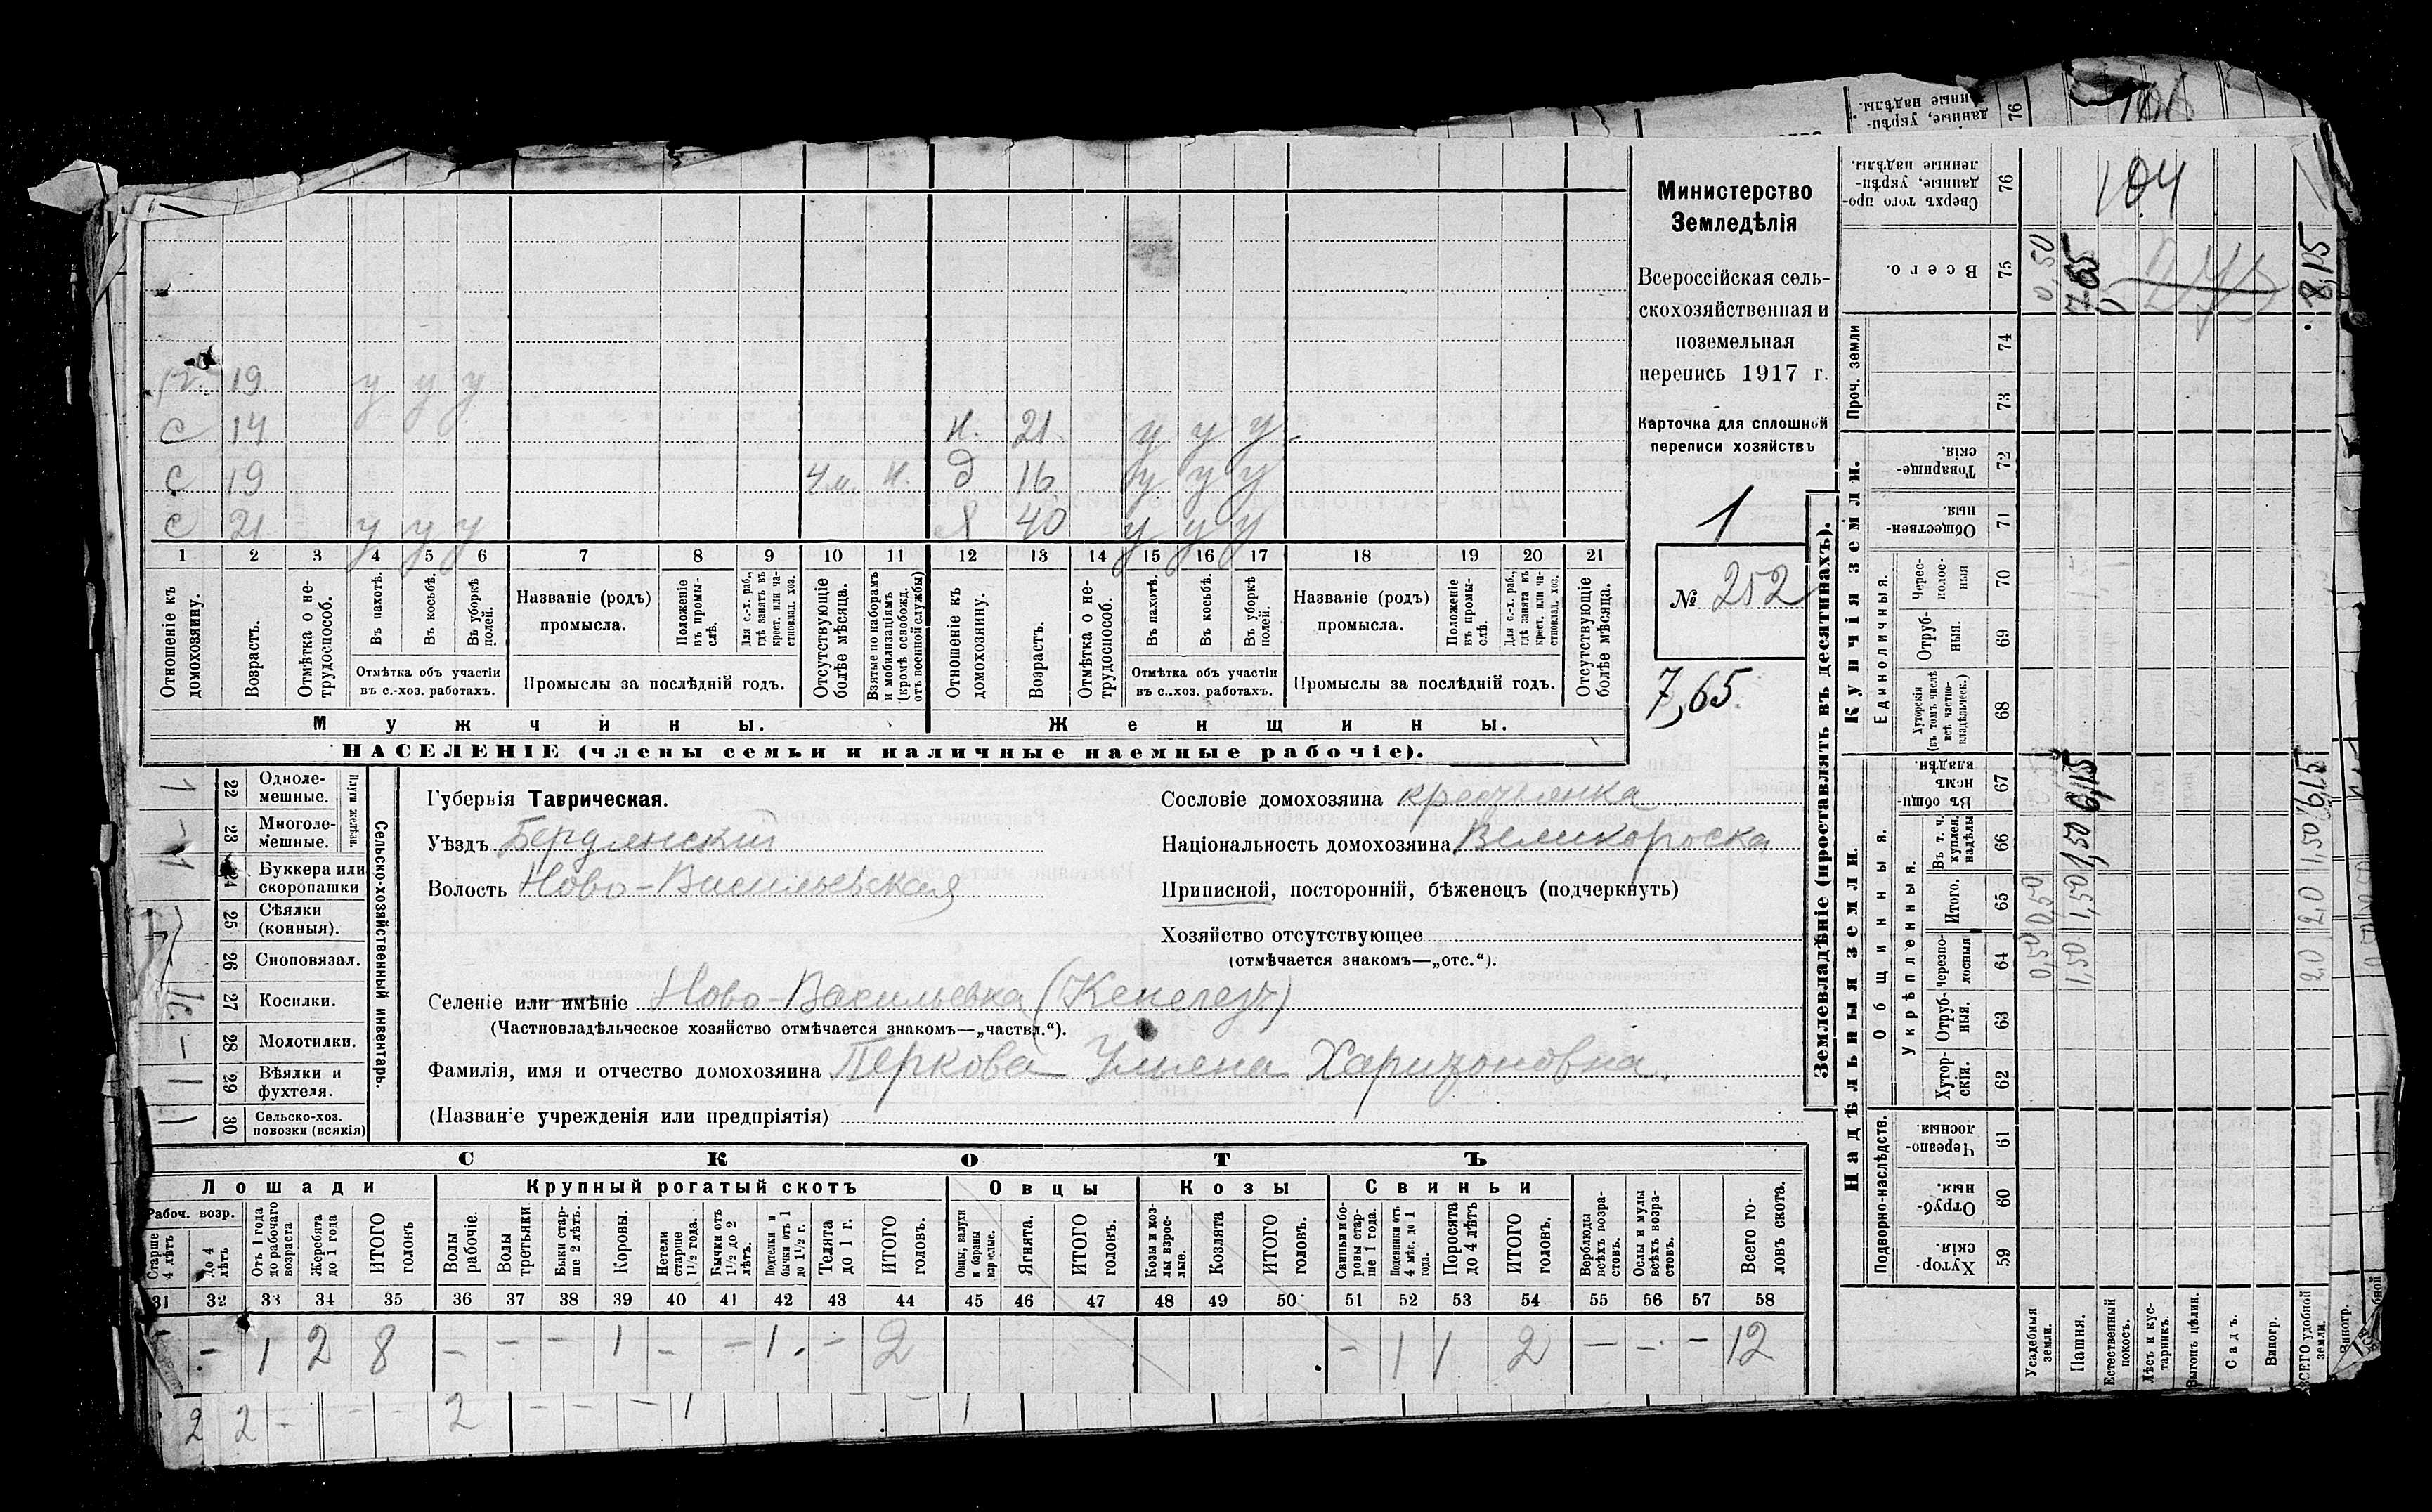 Министерство
Земледѣлія
Всероссійская сель-
скохозяйственная и
поземельная
перепись 1917 г.
Карточка для сплошной
переписи хозяйствъ
1
№ 252
7,65.
19 у у у
с 14 н. 21 у у у
с 19 4 м. н. д 16 у у у
с 21 у у у 40 у у у
1 2 3 4 5 6 7 8 9 10 11 12 13 14 15 16 17 18 19 20 21
Отношеніе къ домохозяину.
Возрастъ.
Отмѣтка о не-трудоспособ.
Въ пахотѣ.
Въ косьбѣ.
Въ уборкѣ полей.
Отмѣтка объ участіи
въ с.-хоз. работахъ.
Названіе (родъ)
промысла.
Положеніе въ промы-слѣ.
Для с.-х. раб., гдѣ занятъ въ крест. или ча-стновлад. хоз.
Промыслы за послѣдній годъ.
Отсутствующіе болѣе мѣсяца.
Взятые по наборамъ и мобилизаціямъ (кромѣ освобожд. отъ военной службы)
Отношеніе къ домохозяину.
Возрастъ.
Отмѣтка о не-трудоспособ.
Въ пахотѣ.
Въ косьбѣ.
Въ уборкѣ полей.
Отмѣтка объ участіи
въ с.-хоз. работахъ.
Названіе (родъ)
промысла.
Положеніе въ промы-слѣ.
Для с.-х. раб., гдѣ занята въ крест. или ча-стновлад. хоз.
Промыслы за послѣдній годъ.
Отсутствующіе болѣе мѣсяца.
Мужчины. Женщины.
НАСЕЛЕНІЕ (члены семьи и наличные наемные рабочіе).
Сельско-хозяйственный инвентарь.
Плуги желѣзн.
22 Одноле-мешные. 1
23 Многоле-мешные.
24 Буккера или скоропашки
25 Сѣялки (конныя).
26 Сноповязал.
27 Косилки.
28 Молотилки. –
29 Вѣялки и фухтеля. 1
30 Сельско-хоз. повозки (всякія)
Губернія Таврическая.
Уѣздъ Бердянскій
Волость Ново-Васильевская
Селеніе или имѣніе Ново-Васильевка (Кенегезъ)
(Частновладѣльческое хозяйство отмѣчается знакомъ—„частвл.“).
Фамилія, имя и отчество домохозяина Перкова Ульяна Харитоновна.
(Названіе учрежденія или предпріятія)
Сословіе домохозяина крестьянка
Національность домохозяина Великороска
Приписной, посторонній, бѣженецъ (подчеркнуть)
Хозяйство отсутствующее
(отмѣчается знакомъ—„отс.“).
СКОТЪ
Лошади Крупный рогатый скотъ Овцы Козы Свиньи
Рабоч. возр.
Старше 4 лѣтъ
до 4 лѣтъ
Отъ 1 года до рабочаго возраста
Жеребята до 1 года
ИТОГО головъ
Волы рабочіе.
Волы третьяки.
Быки стар-ше 2 лѣтъ.
Коровы.
Нетели старше 1½ года.
Бычки отъ 1½ до 2 лѣтъ.
Подтелки и бычки отъ 1 до 1½ г.
Телята до 1 г.
ИТОГО головъ.
Овцы, валухи и бараны взрослые.
Ягнята.
ИТОГО головъ.
Козы и коз-лы взрос-лые.
Козлята
ИТОГО головъ.
Свиньи и бо-ровы стар-ше 1 года.
Подсвинки отъ 4 мѣс. до 1 года.
Поросята до 4 лѣтъ
ИТОГО головъ.
Верблюды всѣхъ возра-стовъ.
Ослы и мулы всѣхъ возра-стовъ.
Всего го-ловъ скота.
31 32 33 34 35 36 37 38 39 40 41 42 43 44 45 46 47 48 49 50 51 52 53 54 55 56 57 58
– 1 2 8 – – – 1 – – 1 – 2 – 1 1 2 – – – 12
2 2 – – – 2 – – – 1 1
Землевладѣніе (проставлять въ десятинахъ).
Надѣльныя земли. Купчія земли.
Подворно-наслѣдств.
Общинныя.
Укрѣпленныя.
Единоличныя.
Проч. земли
59 Хутор-скія.
60 Отруб-ныя.
61 Черезпо-лосныя
62 Хутор-скія.
63 Отруб-ныя.
64 Черезпо-лосныя
65 Итого.
66 Въ т. ч. куплен. надѣлы
67 Въ общин-номъ владѣн.
68 Хуторскія (въ томъ числѣ всѣ частно-владѣльческ.)
69 Отруб-ныя.
70 Черес-полос-ныя
71 Обществен-ныя
72 Товарище-скія
73
74
75 Всего.
76 Сверхъ того про-данные, укрѣп-ленные надѣлы.
Усадебныя земли. 0,50 0,50 0,50
Пашня. 1,50 1,50 1,50 6,15 7,65
Естественный покосъ.
Лѣсъ и кус-тарникъ.
Выгонъ цѣлин.
Садъ.
Виногр.
ВСЕГО удобной земли. 2,0 2,0 1,50 6,15 8,15
104
данные, укрѣп-
76
Виногр.